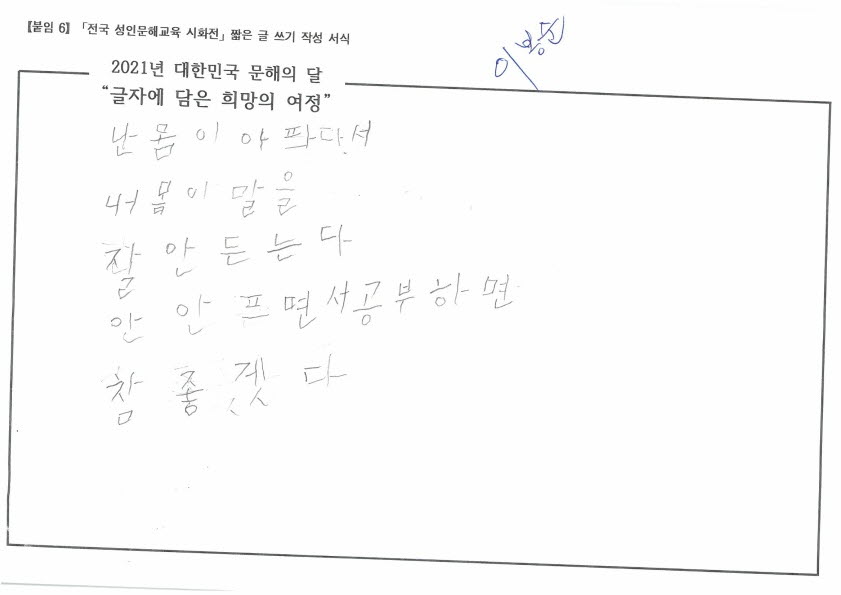 【붙임 6】 「전국 성인문해교육 시화전」 짧은 글 쓰기 작성 서식
2021년 대한민국 문해의 달
“글자에 담은 희망의 여정”
난 몸이 아 파다서
내 몸이 말을
잘 안 든는다
안 안 프면서공부하면
참 좋겟다